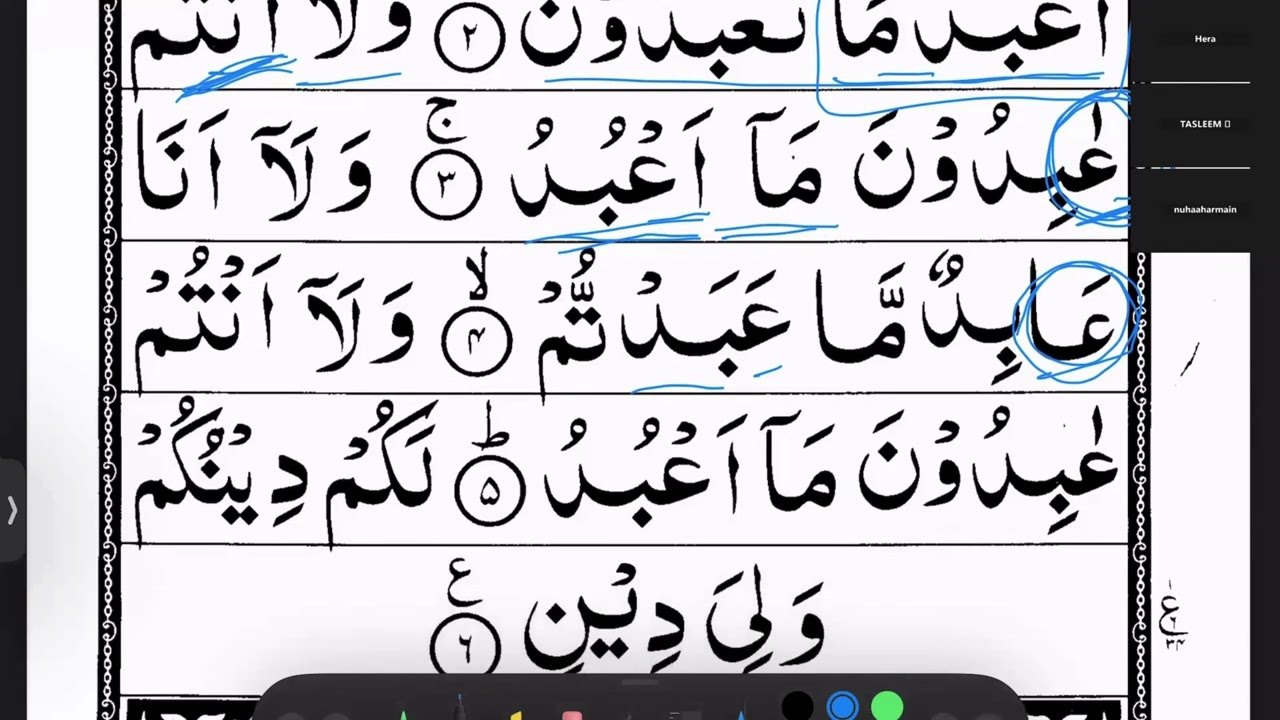 اَعْبُدُ مَا تَعْبُدُوْنَ ۲ وَلَاۤ اَنْتُمْ
عٰبِدُوْنَ مَاۤ اَعْبُدُ ۳ ج وَلَاۤ اَنَا
عَابِدٌ مَّا عَبَدْتُّمْ ۴ لا وَلَاۤ اَنْتُمْ
عٰبِدُوْنَ مَاۤ اَعْبُدُ ۵ ط لَكُمْ دِيْنُكُمْ
وَلِيَ دِيْنِ ۶ ع
Hera
TASLEEM
nuhaaharmain